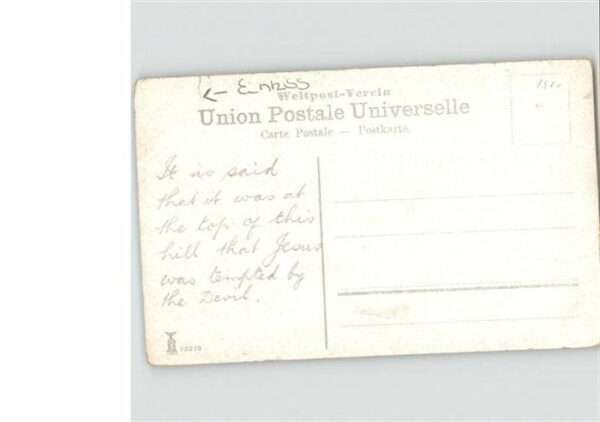 Weltpost-Verein
Union Postale Universelle
Carte Postale — Postkarte.
It is said
that it was at
the top of this
hill that Jesus
was tempted by
the Devil.